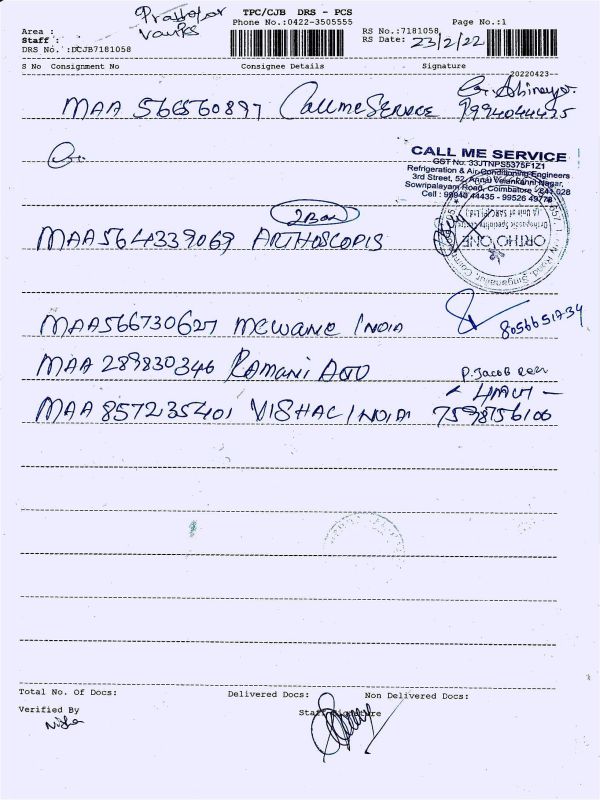 TPC/CJB DRS - PCS
Phone No.:0422-3505555
Page No.:1
Area :
Staff :
DRS No. :DCJB7181058
RS No.:7181058
RS Date: 23/2/22
S No Consignment No Consignee Details Signature
20220423--
MAA 566560897 Call me Service 9994044435
CALL ME SERVICE
GST No. 33JTNPS5375F1Z1
Refrigeration & Air-Conditioning Engineers
3rd Street, 52, Annai Velankanni Nagar,
Sowripalayam Road, Coimbatore - 641 028
Cell : 98940 44435 - 99526 49778
2 Box
MAA 564339069 ARTHOSCOPIS
ORTHO ONE
Orthopaedic Speciality
MAA 566730627 MEWANE INDIA 8056651734
MAA 289830346 RAMANI AUTO P. Jacob
MAA 857235401 VISHAL INDIA 7598756100
Total No. Of Docs: Delivered Docs: Non Delivered Docs:
Verified By Staff Signature
Nisha